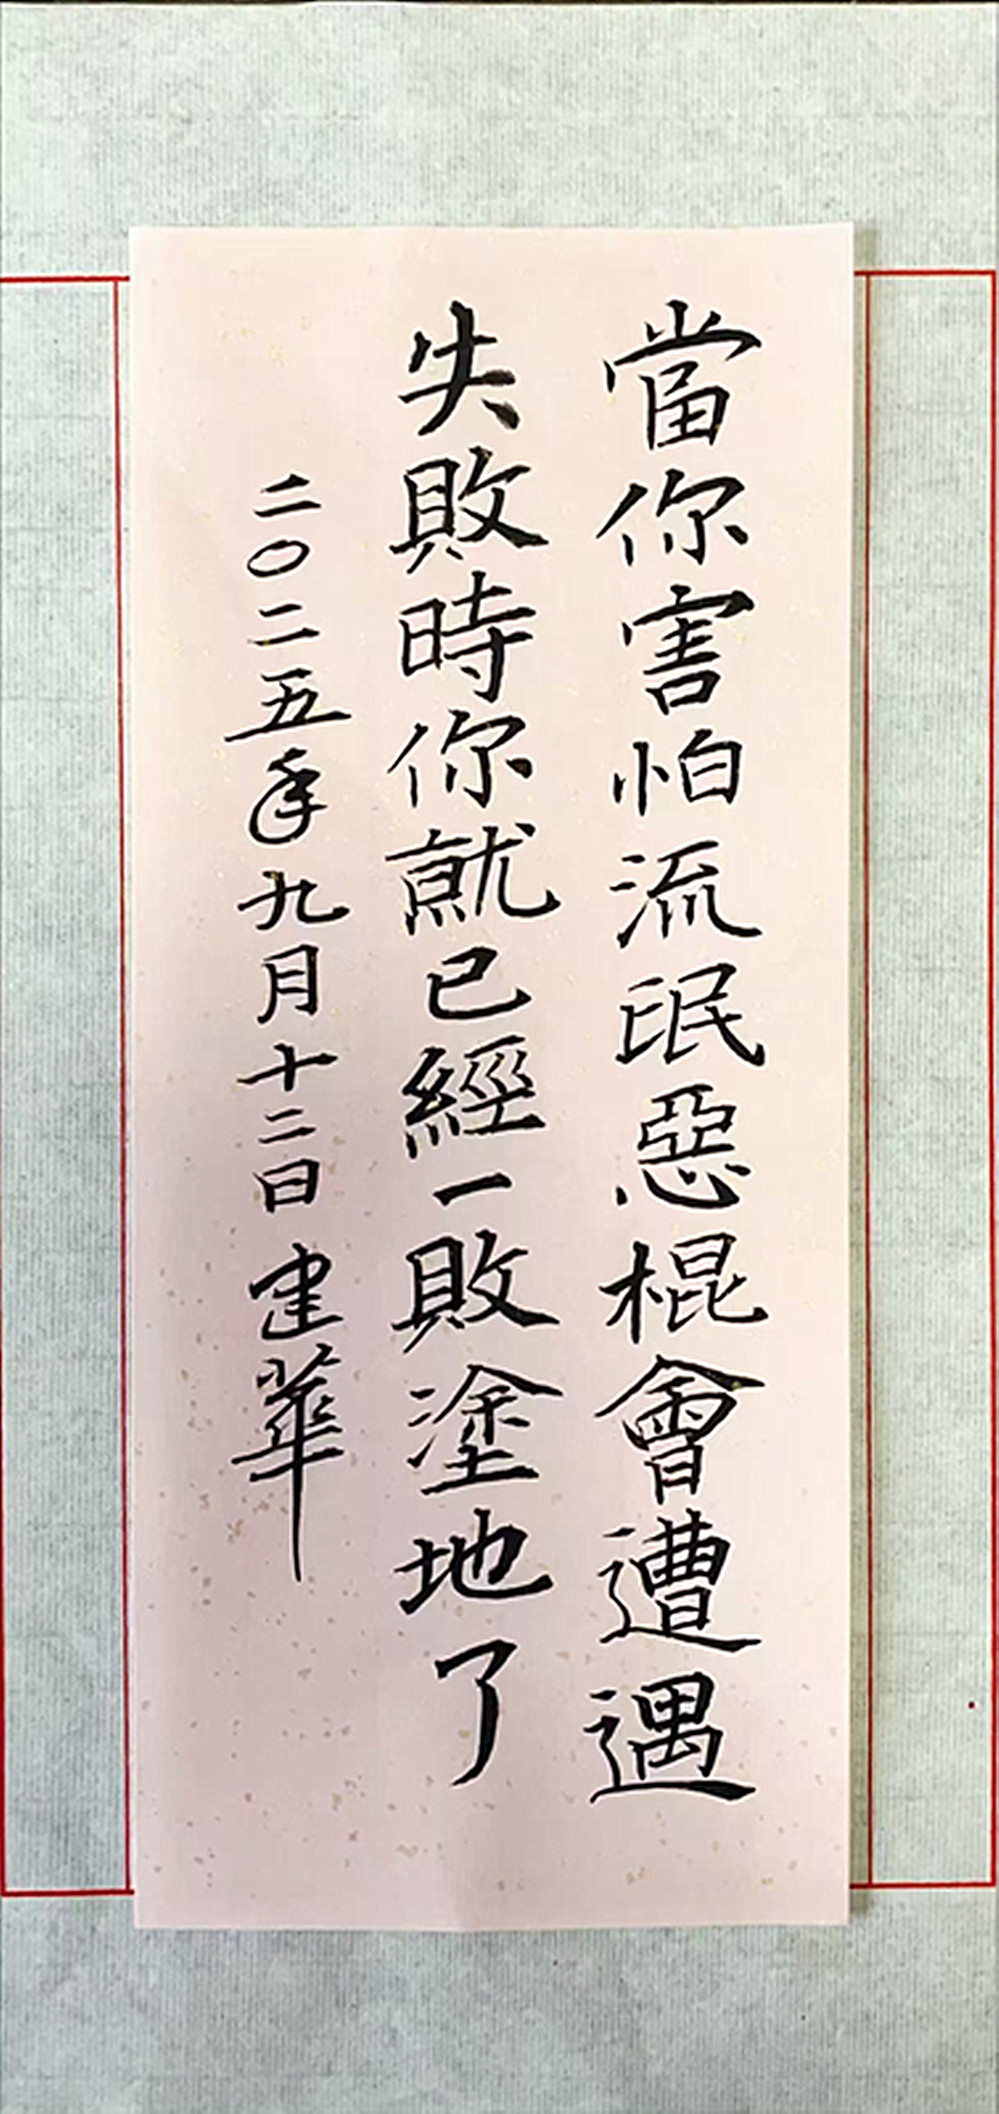 當你害怕流氓惡棍會遭遇
失敗時你就已經一敗塗地了
二〇二五年九月十二日建華